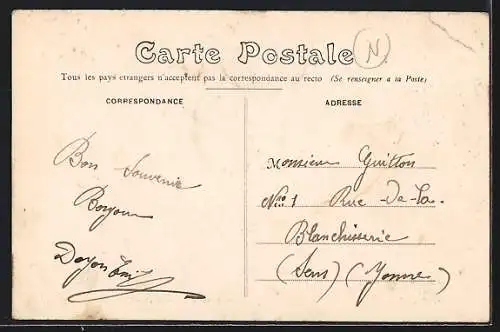 Carte Postale
N
Tous les pays etrangers n'acceptent pas la correspondance au recto (Se renseigner à la Poste)
CORRESPONDANCE
ADRESSE
Bon Souvenir
Monsieur Guitton
No 1 Rue de la
Blanchisserie
(Sens) (Yonne)